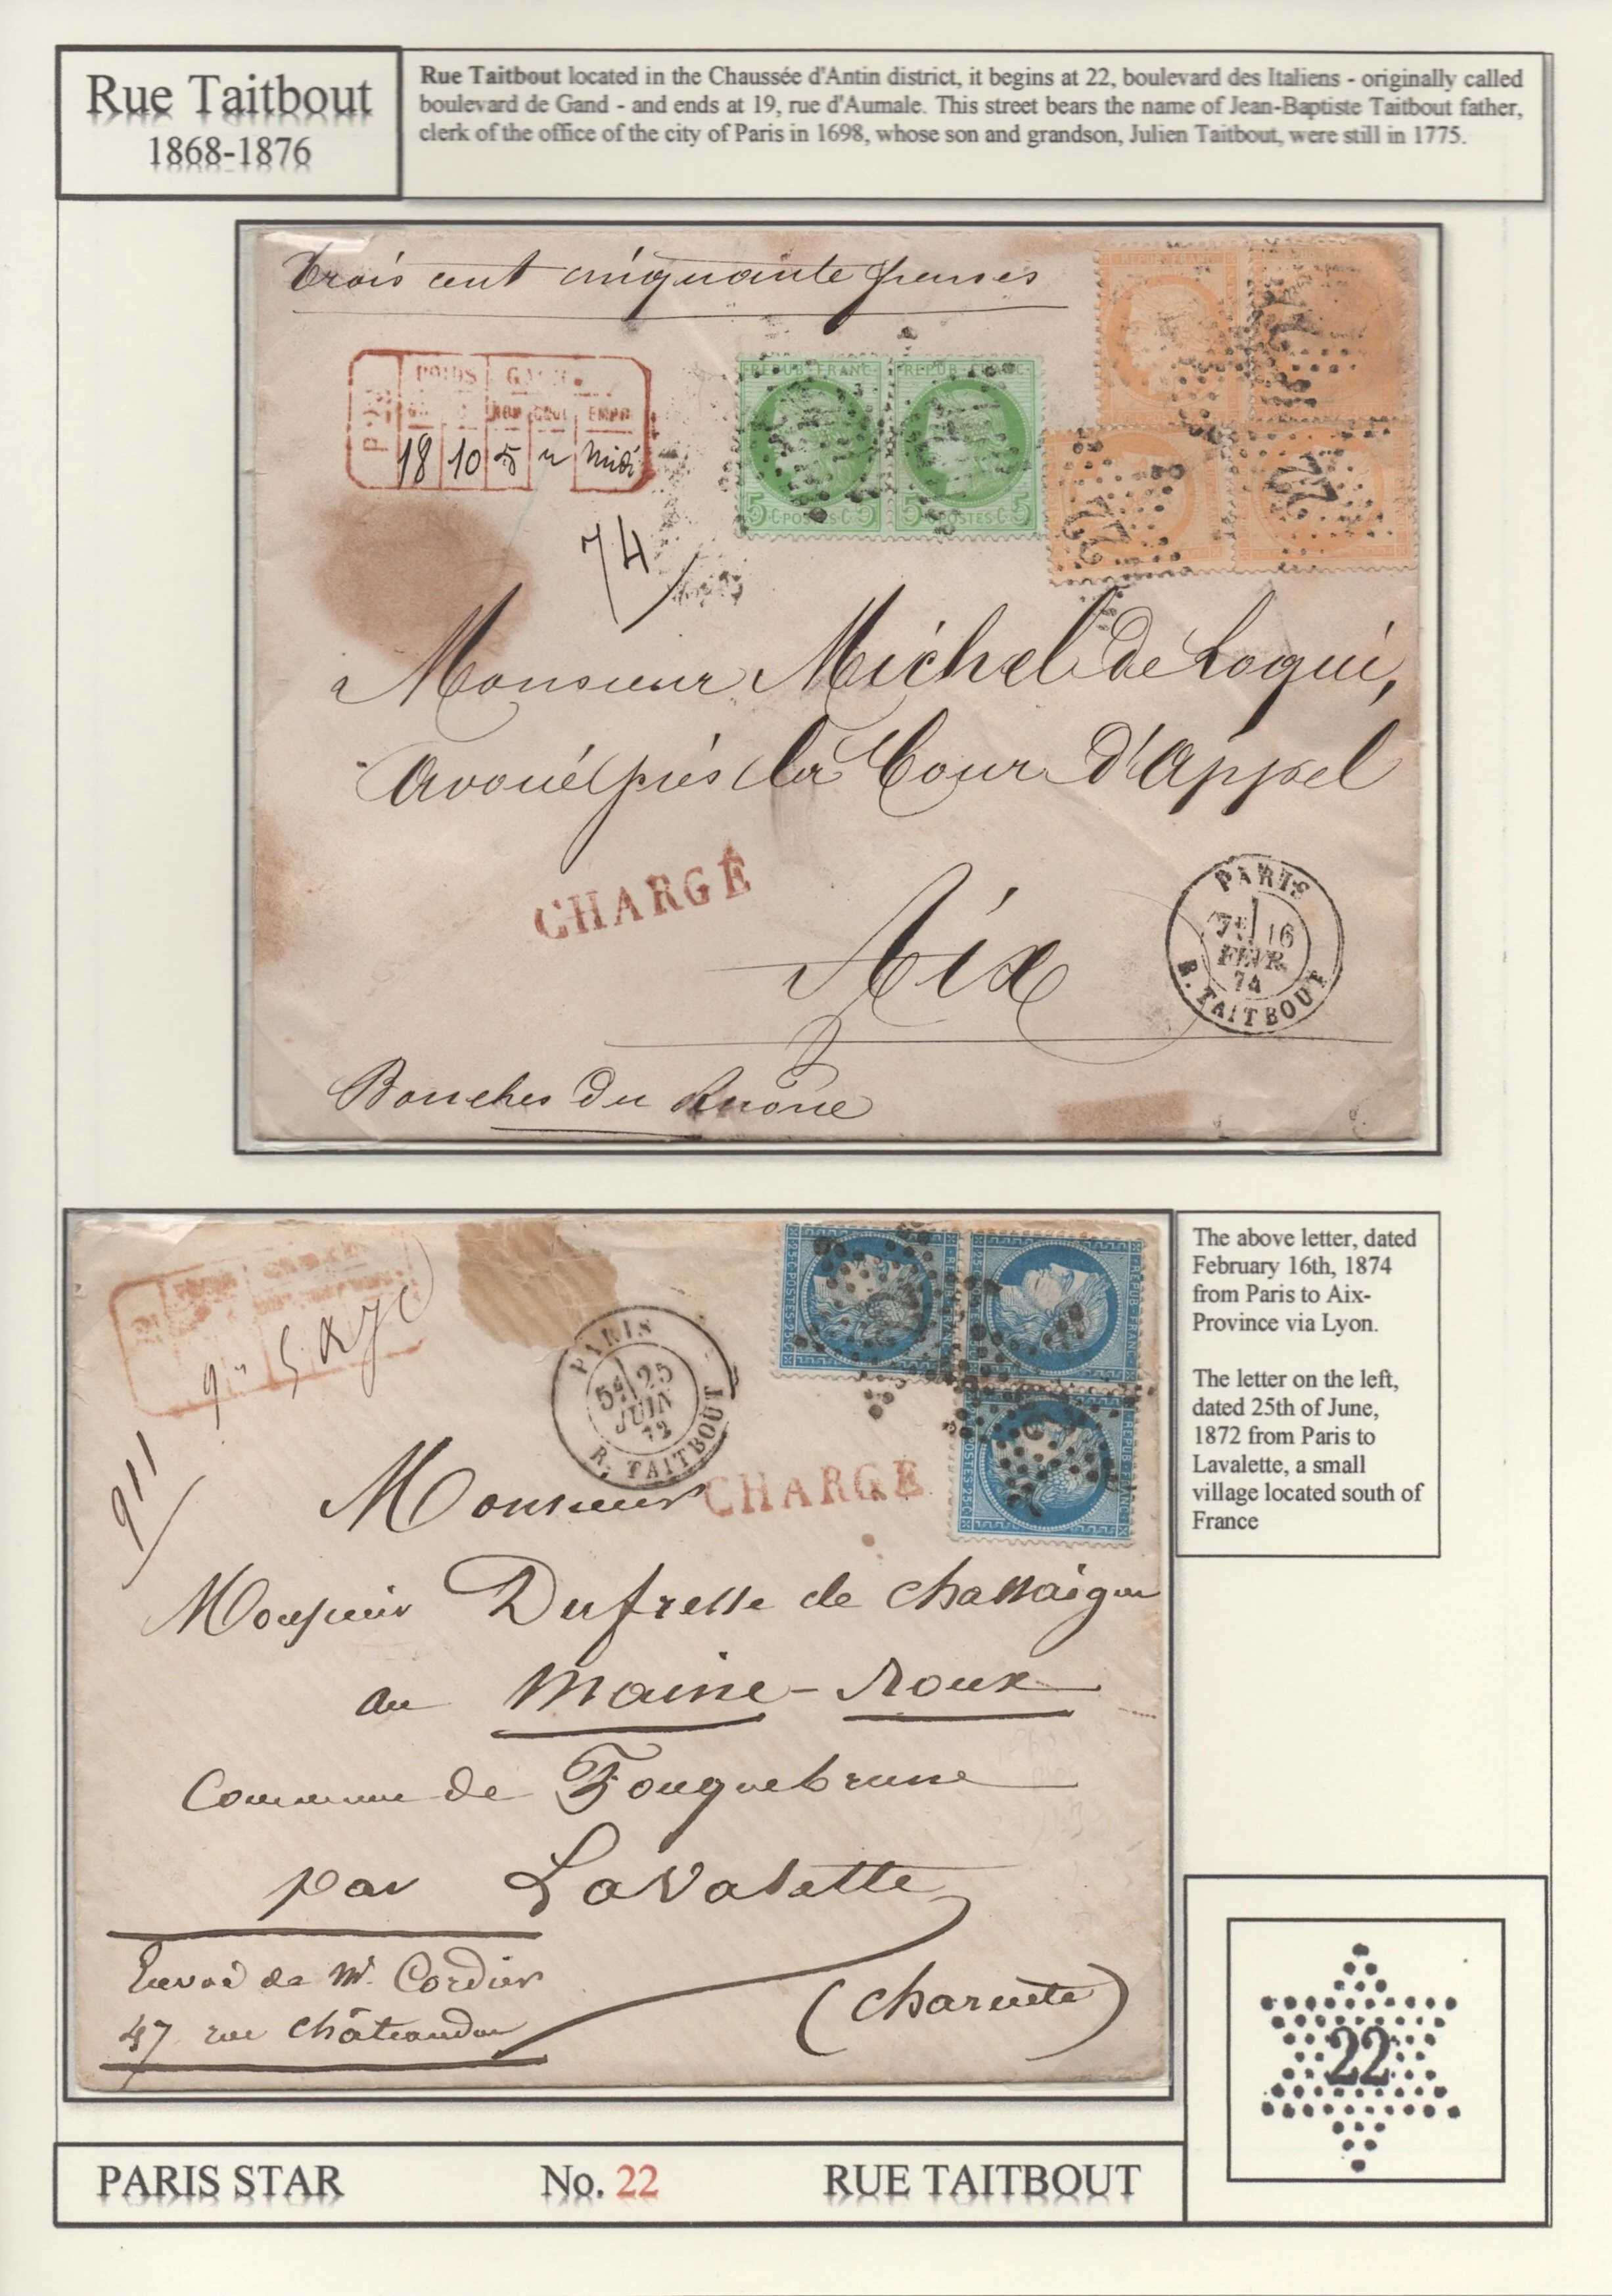 Rue Taitbout
1868-1876
Rue Taitbout located in the Chaussée d'Antin district, it begins at 22, boulevard des Italiens - originally called
boulevard de Gand - and ends at 19, rue d'Aumale. This street bears the name of Jean-Baptiste Taitbout father,
clerk of the office of the city of Paris in 1698, whose son and grandson, Julien Taitbout, were still in 1775.
Trois cent cinquante francs
POIDS
18 10 5 n midi
REPUB FRANC
REPUB FRANC
5 C POSTES C 5
5 C POSTES C 5
22
22
74
a Monsieur Michel de Loqui,
Avoué près la Cour d'Appel
CHARGÉ
Aix
PARIS
16
FEVR.
74
R. TAITBOUT
Bouches du Rhône
PARIS
5E 25
JUIN
72
R. TAITBOUT
911
CHARGÉ
Monsieur
Monsieur Dufresse de Chassaigne
au Maine-Roux
Commune de Fouquebrune
par Lavalette
(Charente)
Envoi de Mr. Cordier
47 rue Châteaudun
The above letter, dated
February 16th, 1874
from Paris to Aix-
Province via Lyon.
The letter on the left,
dated 25th of June,
1872 from Paris to
Lavalette, a small
village located south of
France
22
PARIS STAR No. 22 RUE TAITBOUT